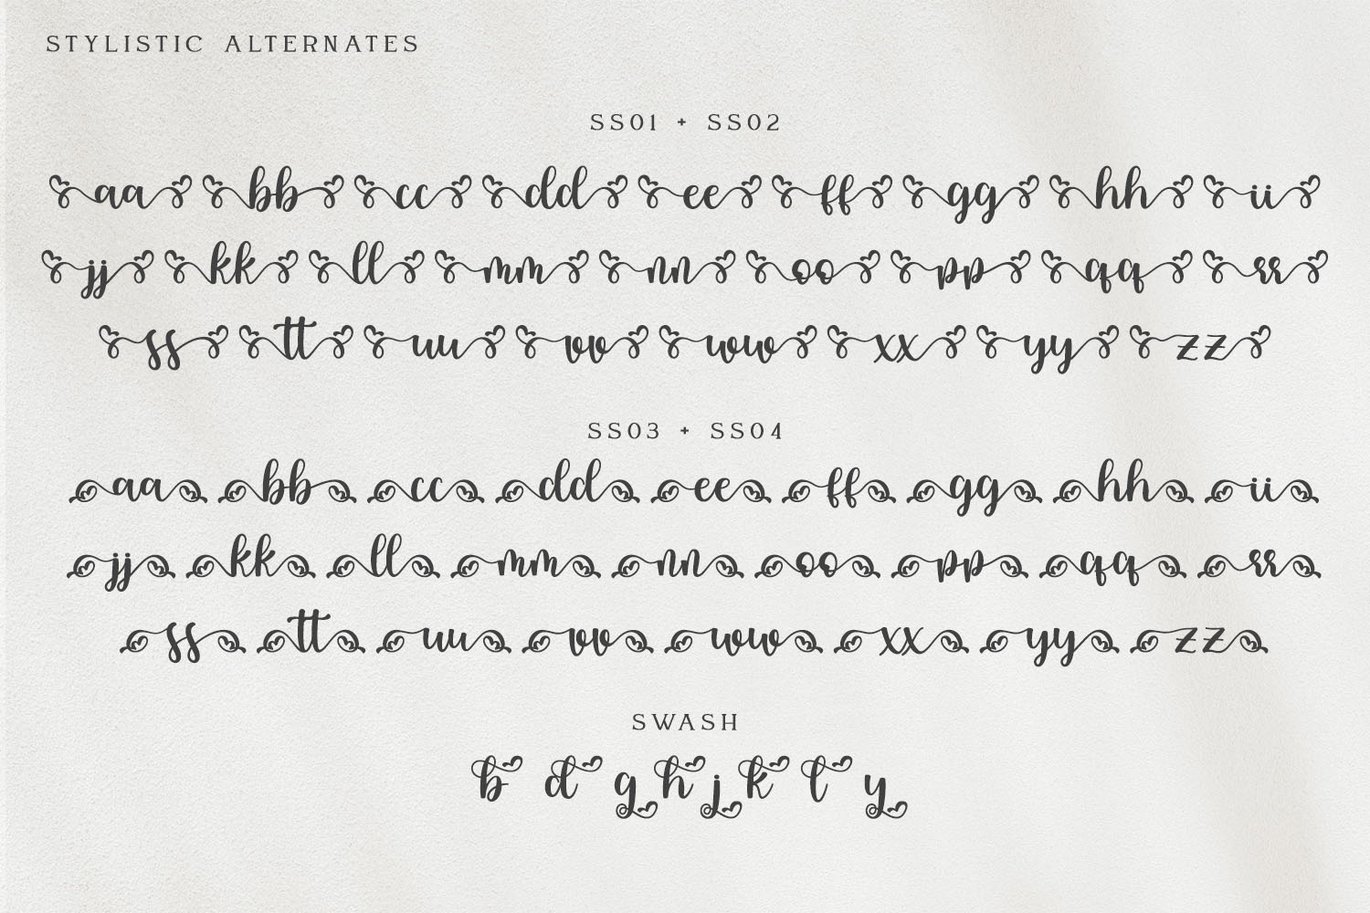 STYLISTIC ALTERNATES
SS01 + SS02
aa bb cc dd ee ff gg hh ii
jj kk ll mm nn oo pp qq rr
ss tt uu vv ww xx yy zz
SS03 + SS04
aa bb cc dd ee ff gg hh ii
jj kk ll mm nn oo pp qq rr
ss tt uu vv ww xx yy zz
SWASH
b d g h j k l y